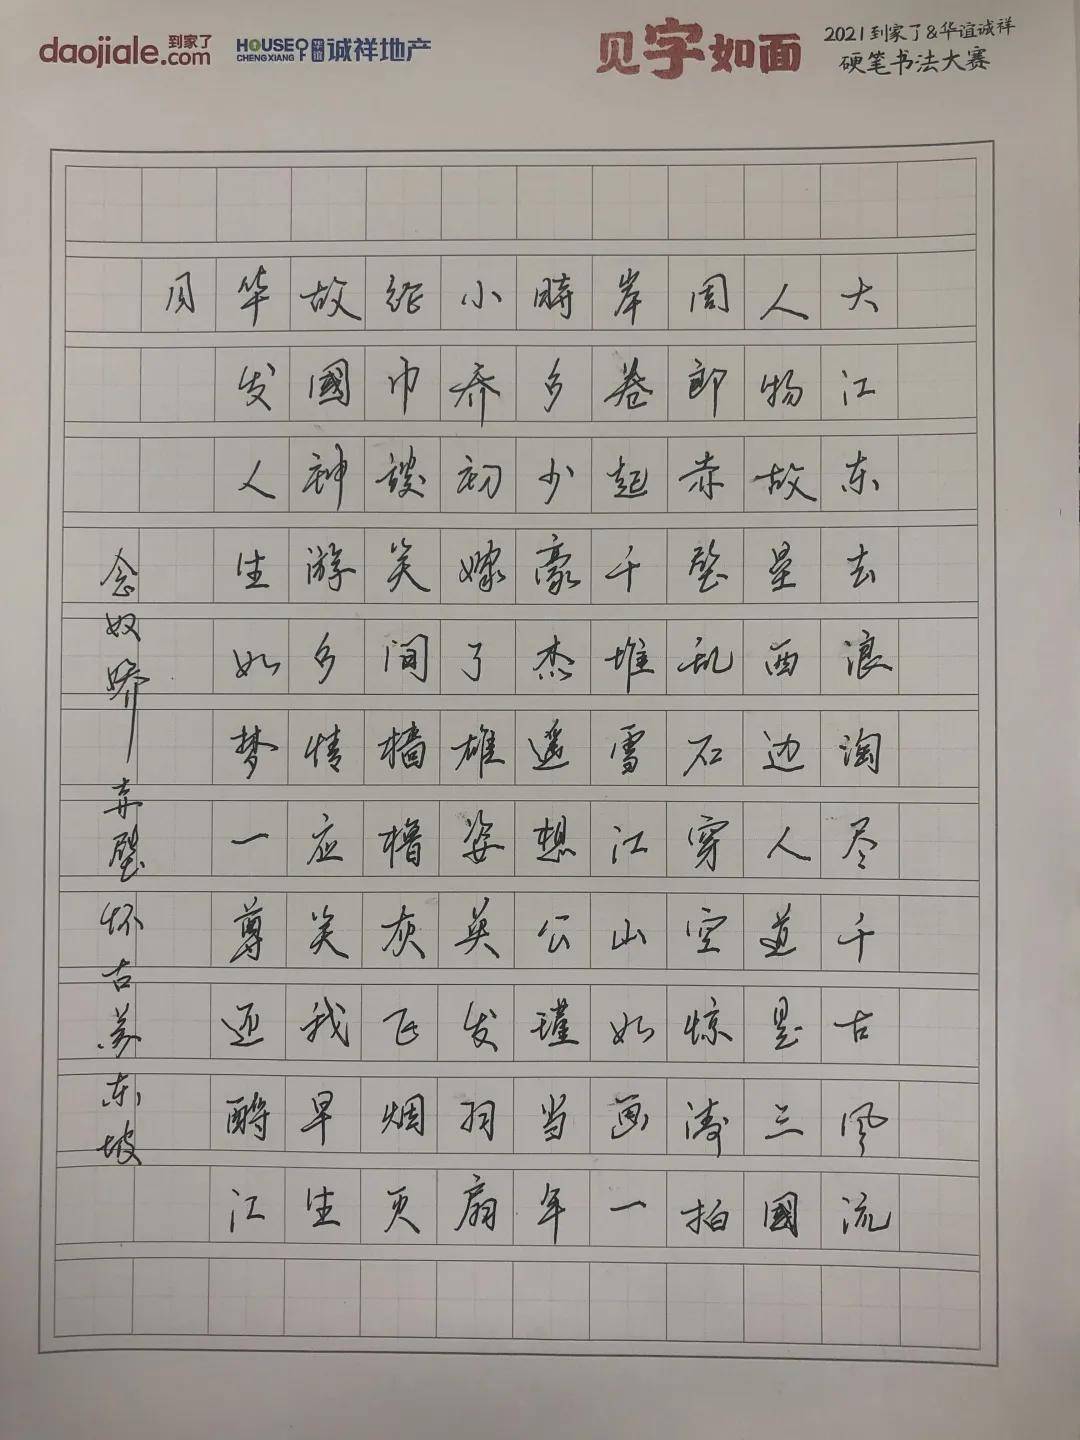 daojiale到家了.com
HOUSE OF CHENGXIANG 华谊 诚祥地产
见字如面
2021到家了&华谊诚祥
硬笔书法大赛
大江东去浪淘尽千古风流
人物故垒西边人道是三國
周郎赤壁乱石穿空惊涛拍
岸卷起千堆雪江山如画一
時多少豪杰遥想公瑾当年
小乔初嫁了雄姿英发羽扇
纶巾談笑间樯橹灰飞烟灭
故國神游多情应笑我早生
华发人生如梦一尊还酹江
月
念奴娇赤壁怀古苏东坡